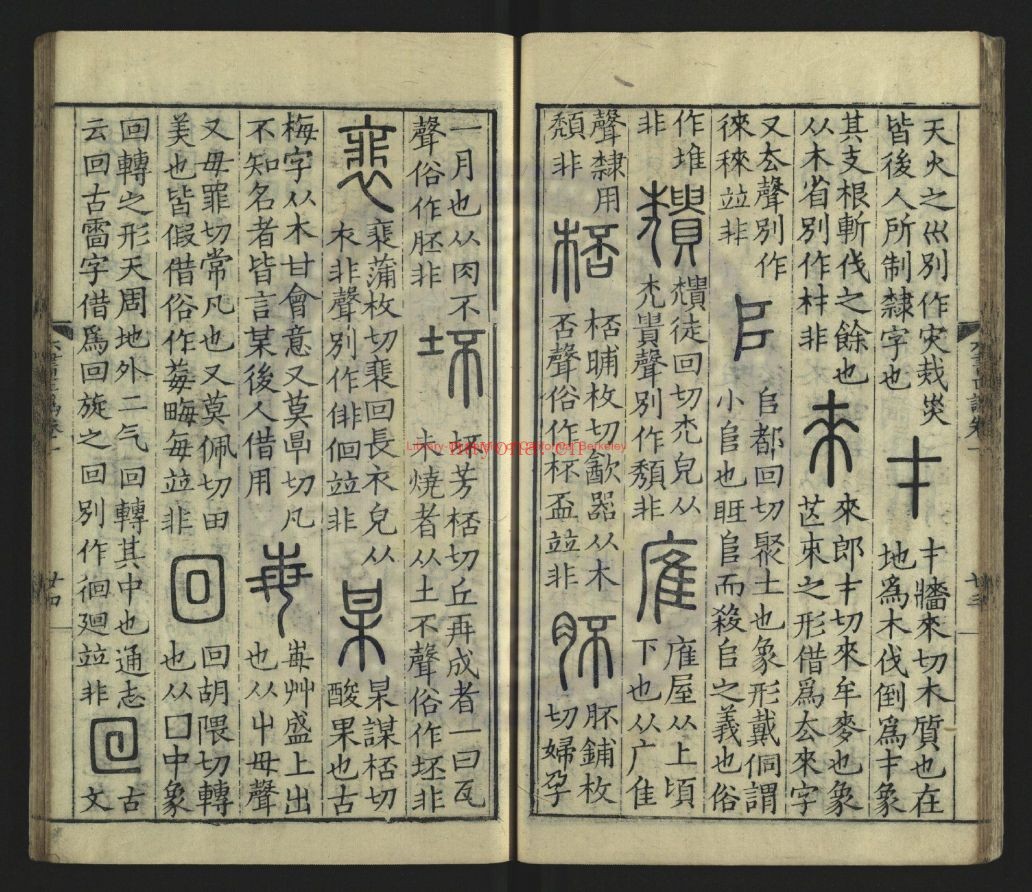 天火之𡿧別作灾烖災
皆後人所制隸字也
才
才牆來切木質也在
地爲木伐倒爲才象
其支根斬伐之餘也
从木省別作材非
來
來郎才切來牟麥也象
芒朿之形借爲去來字
又去聲別作
徠䅘竝非
𠂤
𠂤都回切聚土也象形戴侗謂
小𨸏也𨸏而殺𠂤之義也俗
作堆
非
穨
穨徒回切禿皃从
禿貴聲別作頹非
㢈
㢈屋从上頃
下也从广隹
聲隸用
頹非
桮
桮晡枚切㱃器从木
否聲俗作杯盃竝非
肧
肧鋪枚
切婦孕
廿三
一月也从肉不
聲俗作胚非
坏
坏芳桮切丘再成者一曰瓦
未燒者从土不聲俗作坯非
裴
裴蒲枚切裴回長衣皃从
衣非聲別作俳徊竝非
某
某謀桮切
酸果也古
梅字从木甘會意又莫厚切凡
不知名者皆言某後人借用
每
每艸盛上出
也从屮母聲
又母罪切常凡也又莫佩切田
美也皆假借俗作莓畮每竝非
回
回胡隈切轉
也从囗中象
回轉之形天周地外二气回轉其中也通志
云回古雷字借爲回旋之回別作徊廻竝非
回
古
文
廿四